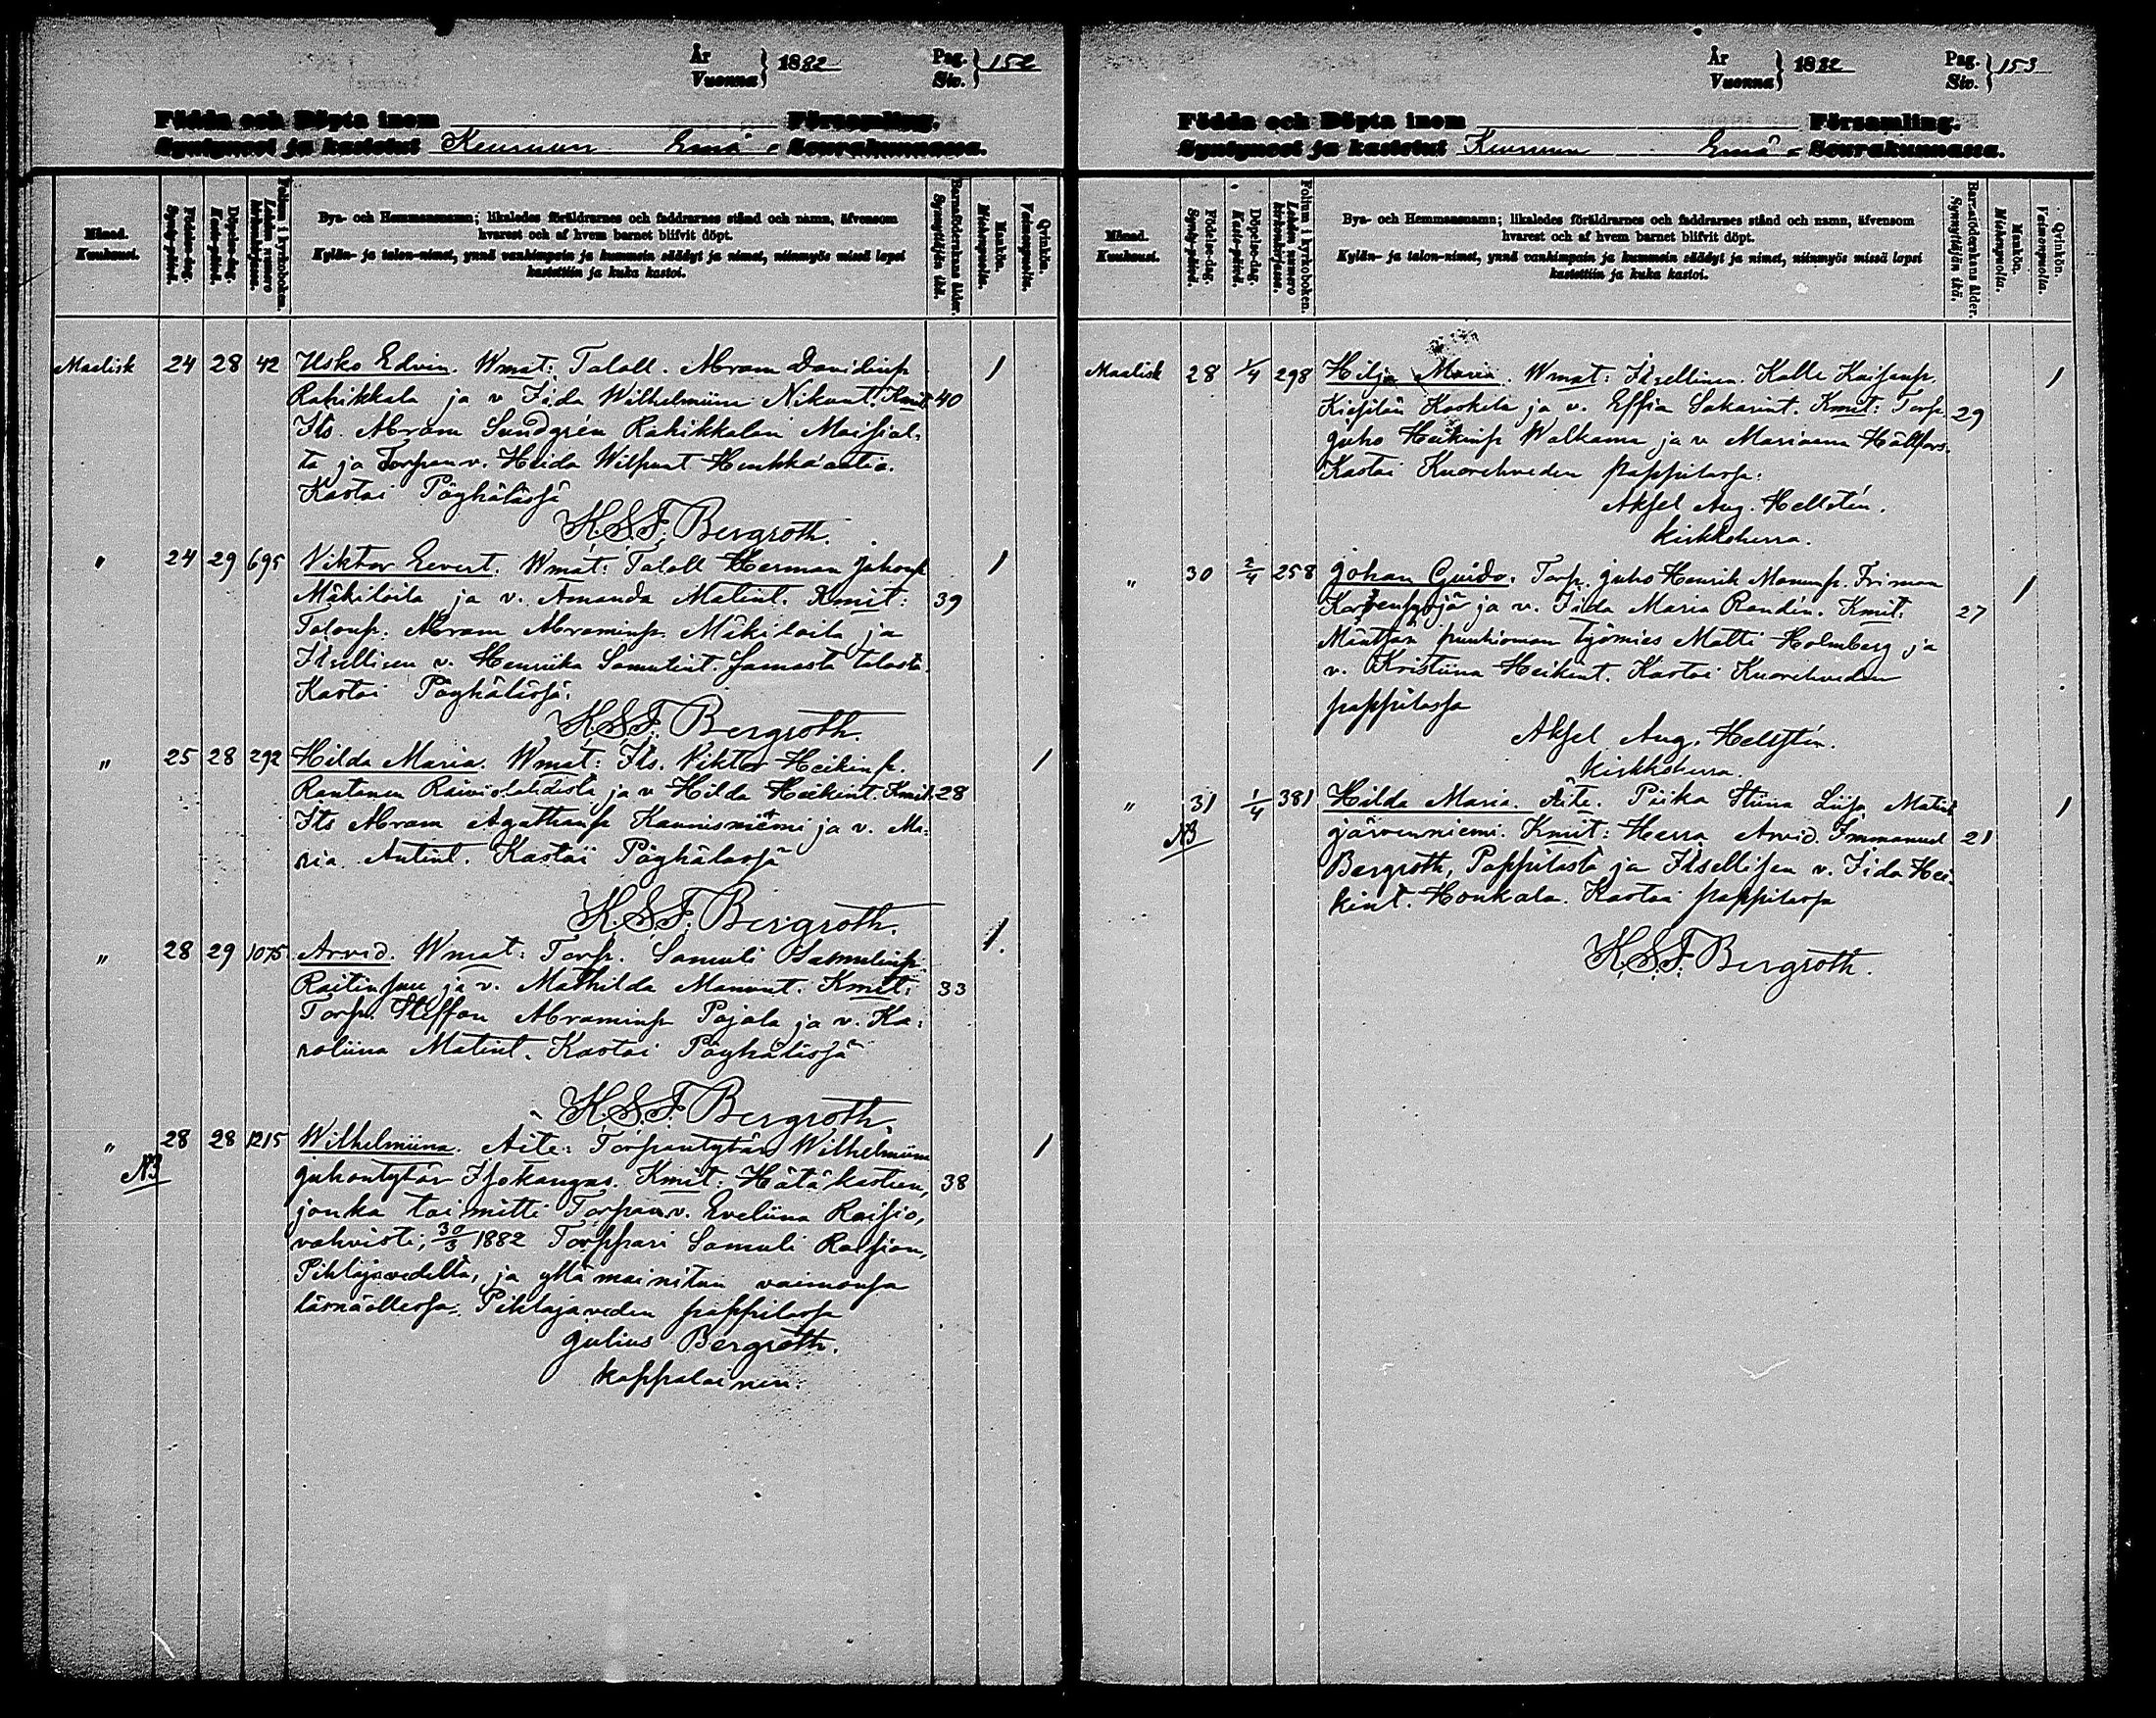 År
Vuonna } 1882
Pag.
Siv. } 152
Födda och Döpta inom Församling.
Syntyneet ja kastetut Keuruun Emä- Seurakunnassa.
Månad.
Kuukausi.
Födelse-dag.
Synty-päivä.
Döpelse-dag.
Kaste-päivä.
Folium i kyrkoboken.
Lehden numero kirkonkirjassa.
Bya- och Hemmansnamn; likaledes föräldrarnes och faddrarnes stånd och namn, äfvensom
hvarest och af hvem barnet blifvit döpt.
Kylän- ja talon-nimet, ynnä vanhimpain ja kummein säädyt ja nimet, niinmyös missä lapsi
kastettiin ja kuka kastoi.
Barnaföderskans ålder.
Synnyttäjän ikä.
Mankön.
Miehenpuolia.
Qvinkön.
Vaimonpuolia.
Maalisk 24 28 42 Usko Edvin. Wmat: Taloll. Abram Davidinp 1
Rahikkala ja v Iida Wilhelmiina Nikunt. Kmit. 40
Its. Abram Sundgrén Rahikkalan Maisial-
ta ja Torpan v. Heida Wilpunt Henkka'aatia.
Kastoi Pöyhölässä
K.S.F. Bergroth.
" 24 29 695 Viktor Evert. Wmat: Taloll Herman Juhonp 1
Mäkiloila ja v. Amanda Matint. Kmit: 39
Talonp. Abram Abraminp. Mäkiloila ja
Itsellisen v. Henriika Samulint. samasta talosta.
Kastoi Pöyhölässä.
K.S.F. Bergroth.
" 25 28 292 Hilda Maria. Wmat: Its. Viktor Heikinp. 1
Rantanen Raiviolahdesta ja v Hilda Heikint. Kmit. 28
Its Abram Agathanp Kaunisniemi ja v. Ma-
ria Antint. Kastoi Pöyhölässä
K.S.F. Bergroth.
" 28 29 1075 Arvid. Wmat: Torp. Samuli Samulinp 1.
Raitinpuu ja v. Mathilda Manunt. Kmit: 33
Torp. Steffan Abraminp Pajala ja v. Ka-
roliina Matint. Kastoi Pöyhölässä
K.S.F. Bergroth.
" 28 28 1215 Wilhelmiina. Äite: Torpantytär Wilhelmiina 1
NB Juhontytär Isokangas. Kmit: Hätäkasteen, 38
jonka toimitti Torpan v. Eveliina Raisio,
vahvisti, 30/3 1882 Torppari Samuli Raision,
Pihlajavedeltä, ja yllä mainitun vaimonsa
läsnäollessa. Pihlajaveden pappilassa
Julius Bergroth.
kappalainen.
År
Vuonna } 1882
Pag.
Siv. } 153
Födda och Döpta inom Församling.
Syntyneet ja kastetut Keuruun Emä- Seurakunnassa.
Månad.
Kuukausi.
Födelse-dag.
Synty-päivä.
Döpelse-dag.
Kaste-päivä.
Folium i kyrkoboken.
Lehden numero kirkonkirjassa.
Bya- och Hemmansnamn; likaledes föräldrarnes och faddrarnes stånd och namn, äfvensom
hvarest och af hvem barnet blifvit döpt.
Kylän- ja talon-nimet, ynnä vanhimpain ja kummein säädyt ja nimet, niinmyös missä lapsi
kastettiin ja kuka kastoi.
Barnaföderskans ålder.
Synnyttäjän ikä.
Mankön.
Miehenpuolia.
Qvinkön.
Vaimonpuolia.
Maalisk 28 1/4 298 Hilja Maria. Wmat: Itsellinen. Kalle Kaisanp. 1
Koskela ja v. Effia Sakarint. Kmit: Torp. 29
Juho Heikinp Walkama ja v Mariaana Hällfors.
Kastoi Kuorehveden pappilassa:
Aksel Aug. Hellstén.
kirkkoherra.
" 30 2/4 258 Johan Guido. Torp. Juho Henrik Manunp. Friman 1
ja v. Iida Maria Randén. Kmit: 27
Mäntsän puuhioman työmies Matti Holmberg ja
v. Kristiina Heikint. Kastoi Kuorehveden
pappilassa
Aksel Aug. Hellstén.
kirkkoherra.
" 31 1/4 381 Hilda Maria. Äite. Piika Stiina Liisa Matint 1
NB Järvenniemi. Kmit: Herra Arvid Immanuel 21
Bergroth, Pappilasta ja Itsellisen v. Iida Hei-
kint. Honkala. Kastoi pappilassa
K.S.F. Bergroth.